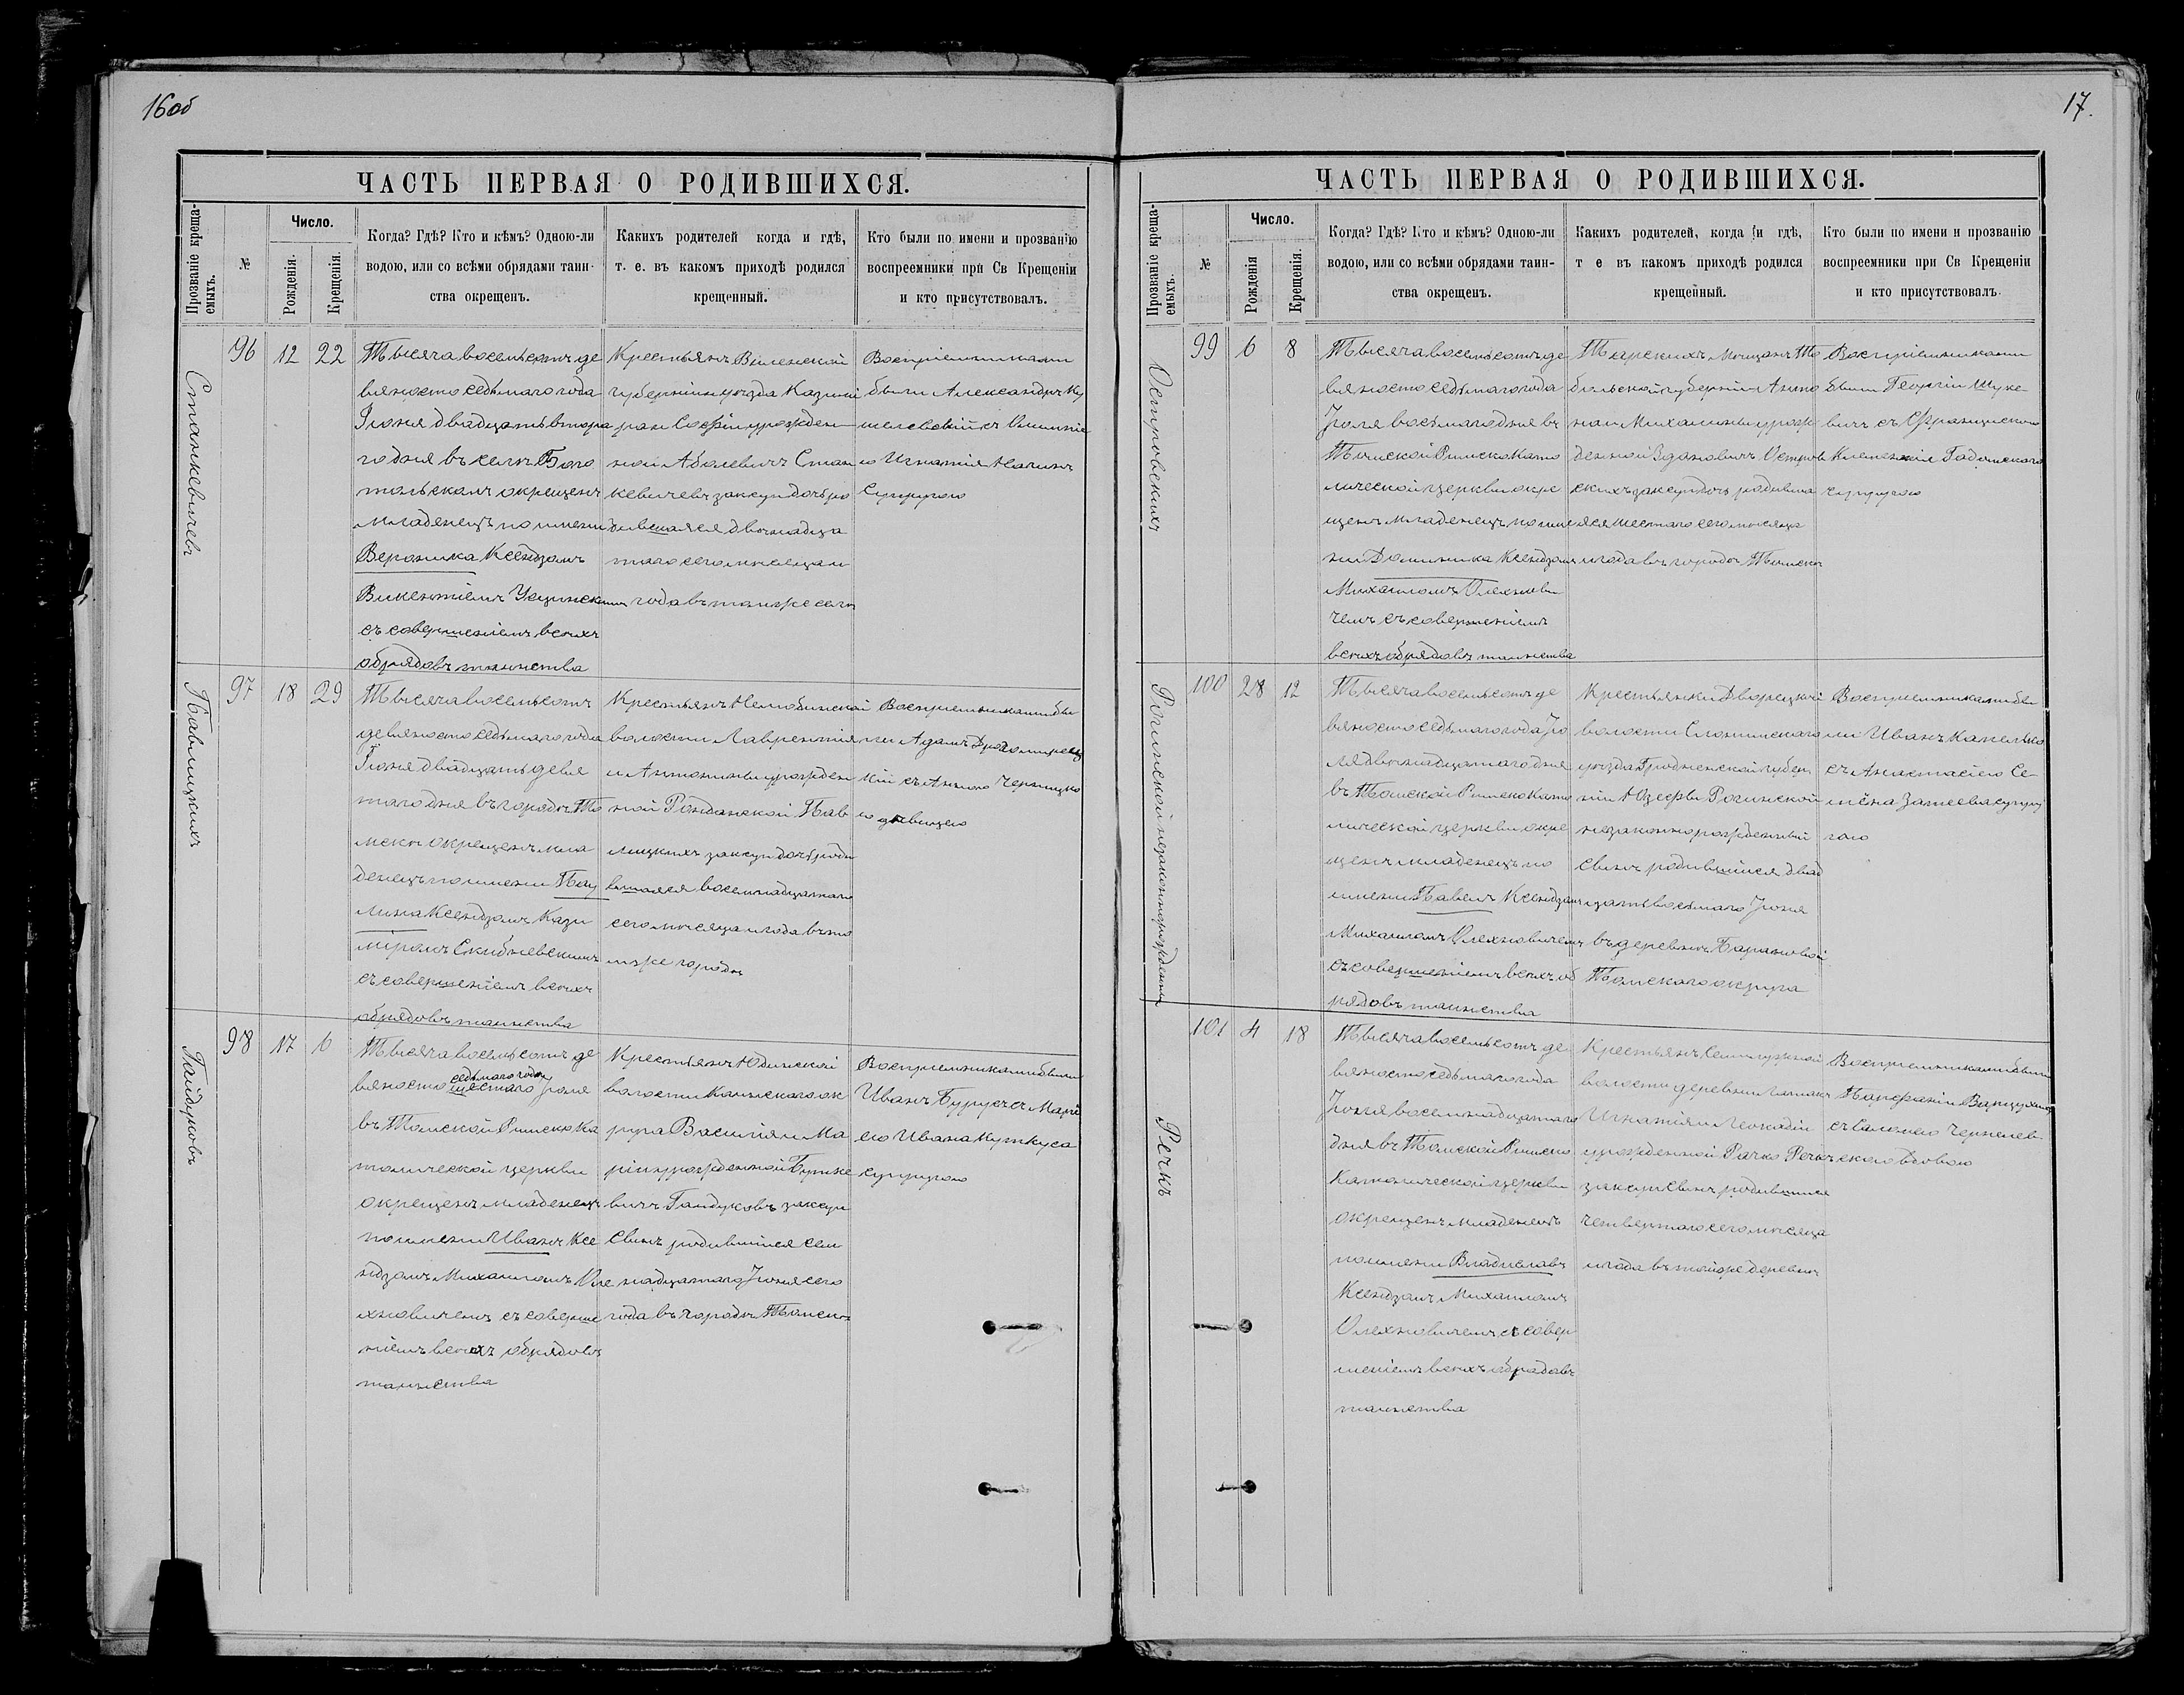 16об
ЧАСТЬ ПЕРВАЯ О РОДИВШИХСЯ.
Прозваніе креща-
емыхъ.
№
Число.
Рожденія.
Крещенія.
Когда? Гдѣ? Кто и кѣмъ? Одною-ли
водою, или со всѣми обрядами таин-
ства окрещенъ.
Какихъ родителей когда и гдѣ,
т. е. въ какомъ приходѣ родился
крещенный.
Кто были по имени и прозванію
воспреемники при Св Крещеніи
и кто присутствовалъ.
Станкевичевъ
96
12
22
Тысяча восемьсотъ де
вяносто седьмаго года
Іюня двадцать втора
го дня въ селѣ Бого
тольскомъ окрещенъ
младенецъ по имени
Вероника Ксендзомъ
Викентіемъ
съ совершеніемъ всѣхъ
обрядовъ таинства
Крестьянъ Виленской
губерніи и уѣзда Казими
ра и Софіи урожден
ной Аболевичъ Стан
кевичевъ зак супр дочь ро
дившаяся двѣнадца
таго сего мѣсяца и
года въ томъ же селѣ
Воспріемниками
были Александръ Ку
шелевскій съ
Игнатія
Супругою
Павлицкихъ
97
18
29
Тысяча восемьсотъ
девяносто седьмаго года
Іюня двадцать девя
таго дня въ городѣ То
мскѣ окрещенъ мла
денецъ по имени Пау
лина Ксендзомъ Кази
міромъ Скибневскимъ
съ совершеніемъ всѣхъ
обрядовъ таинства
Крестьянъ Нелюбинской
волости Лаврентія
и Антонины урожден
ной Ронданской Пав
лицкихъ зак супр дочь роди
вшаяся восемнадцатаго
сего мѣсяца и года въ то
мже городѣ
Воспреемниками бы
ли Адамъ
кій съ Анною Черницко
ю дѣвицею
Гайдуковъ
98
17
6
Тысяча восемьсотъ де
седьмаго года
вяносто шестаго Іюля
въ Томской Римско Ка
толической церкви
окрещенъ младенецъ
по имени Иванъ Ксе
ндзомъ Михаиломъ Оле
хновичемъ съ соверше
ніемъ всѣхъ обрядовъ
таинства
Крестьянъ Юдинской
волости Каинскаго ок
руга Василія и Ма
ріи урожденной Бутке
вичъ Гайдуковъ зак супр
сынъ родившійся сем
надцатаго Іюня сего
года въ городѣ Томскѣ
Воспреемниками были
Иванъ Бурусъ съ Марі
ею Ивана Куткуса
супругою
17.
ЧАСТЬ ПЕРВАЯ О РОДИВШИХСЯ.
Прозваніе креща-
емыхъ.
№
Число.
Рожденія
Крещенія.
Когда? Гдѣ? Кто и кѣмъ? Одною-ли
водою, или со всѣми обрядами таин-
ства окрещенъ.
Какихъ родителей, когда и гдѣ,
т е въ какомъ приходѣ родился
крещенный.
Кто были по имени и прозванію
воспреемники при Св Крещеніи
и кто присутствовалъ.
Островскихъ
99
6
8
Тысяча восемьсотъ де
вяносто седьмаго года
Іюля восьмаго дня въ
Томской Римско Като
лической церкви окре
щенъ младенецъ по име
ни Доминика Ксендзомъ
Михаиломъ Олехнови
чемъ съ совершеніемъ
всѣхъ обрядовъ таинства
Тарскихъ Мѣщанъ То
больской губерніи Анто
на и Михалины урож
денной Здановичъ Остров
скихъ зак супр дочь родивша
яся шестаго сего мѣсяца
и года въ городѣ Томскѣ
Воспріемниками
были Георгій Шуке
вичъ съ Францискою
Супругою
Рогинской незаконнорожденный
100
28
12
Тысяча восемьсотъ де
вяносто седьмаго года Ію
ля двѣнадцатаго дня
въ Томской Римско Като
лической церкви окре
щенъ младенецъ по
имени Павелъ Ксендзомъ
Михаиломъ Олехновичемъ
съ совершеніемъ всѣхъ об
рядовъ таинства
Крестьянки Дворецкой
волости Слонимскаго
уѣзда Гродненской губер
ніи Юзефы Рогинской
незаконнорожденный
сынъ родившійся двад
цать восьмаго Іюня
въ деревнѣ Барановой
Томскаго округа
Воспреемниками бы
ли Иванъ Капелько
съ Анастасіею Се
мёна Затеева супру
гою
Речкъ
101
4
18
Тысяча восемьсотъ де
вяносто седьмаго года
Іюля восемнадцатаго
дня въ Томской Римско
Католической церкви
окрещенъ младенецъ
по имени Владиславъ
Ксендзомъ Михаиломъ
Олехновичемъ съ совер
шеніемъ всѣхъ обрядовъ
таинства
Крестьянъ Семилужной
волости деревни
Игнатія и Леокадіи
урожденной Рачко Речкъ
зак супр сынъ родившійся
четвертаго сего мѣсяца
и года въ той же деревнѣ
Воспреемниками были
съ Саломеею Чернев
скою вдовою